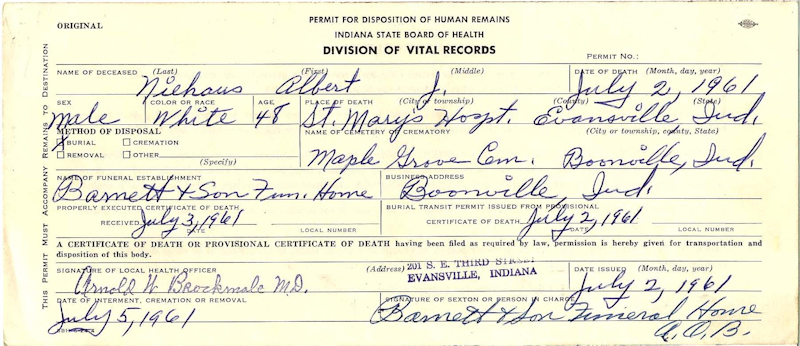 ORIGINAL
PERMIT FOR DISPOSITION OF HUMAN REMAINS
INDIANA STATE BOARD OF HEALTH
DIVISION OF VITAL RECORDS
PERMIT NO.:
THIS PERMIT MUST ACCOMPANY REMAINS TO DESTINATION
NAME OF DECEASED (Last) (First) (Middle) DATE OF DEATH (Month, day, year)
Niehaus Albert J. July 2, 1961
SEX COLOR OR RACE AGE PLACE OF DEATH (City or township) (County) (State)
Male White 48 St. Mary's Hospt. Evansville Ind.
METHOD OF DISPOSAL NAME OF CEMETERY OR CREMATORY (City or township, county, State)
BURIAL CREMATION
REMOVAL OTHER
(Specify)
Maple Grove Cem. Boonville, Ind.
NAME OF FUNERAL ESTABLISHMENT BUSINESS ADDRESS
Barnett & Son Fun. Home Boonville, Ind.
PROPERLY EXECUTED CERTIFICATE OF DEATH BURIAL TRANSIT PERMIT ISSUED FROM PROVISIONAL
RECEIVED July 3, 1961 CERTIFICATE OF DEATH July 2, 1961
DATE LOCAL NUMBER DATE LOCAL NUMBER
A CERTIFICATE OF DEATH OR PROVISIONAL CERTIFICATE OF DEATH having been filed as required by law, permission is hereby given for transportation and
disposition of this body.
SIGNATURE OF LOCAL HEALTH OFFICER (Address) 201 S. E. THIRD STREET DATE ISSUED (Month, day, year)
EVANSVILLE, INDIANA
Arnold W Brockmole M.D. July 2, 1961
DATE OF INTERMENT, CREMATION OR REMOVAL SIGNATURE OF SEXTON OR PERSON IN CHARGE
July 5, 1961 Barnett & Son Funeral Home
A.O.B.